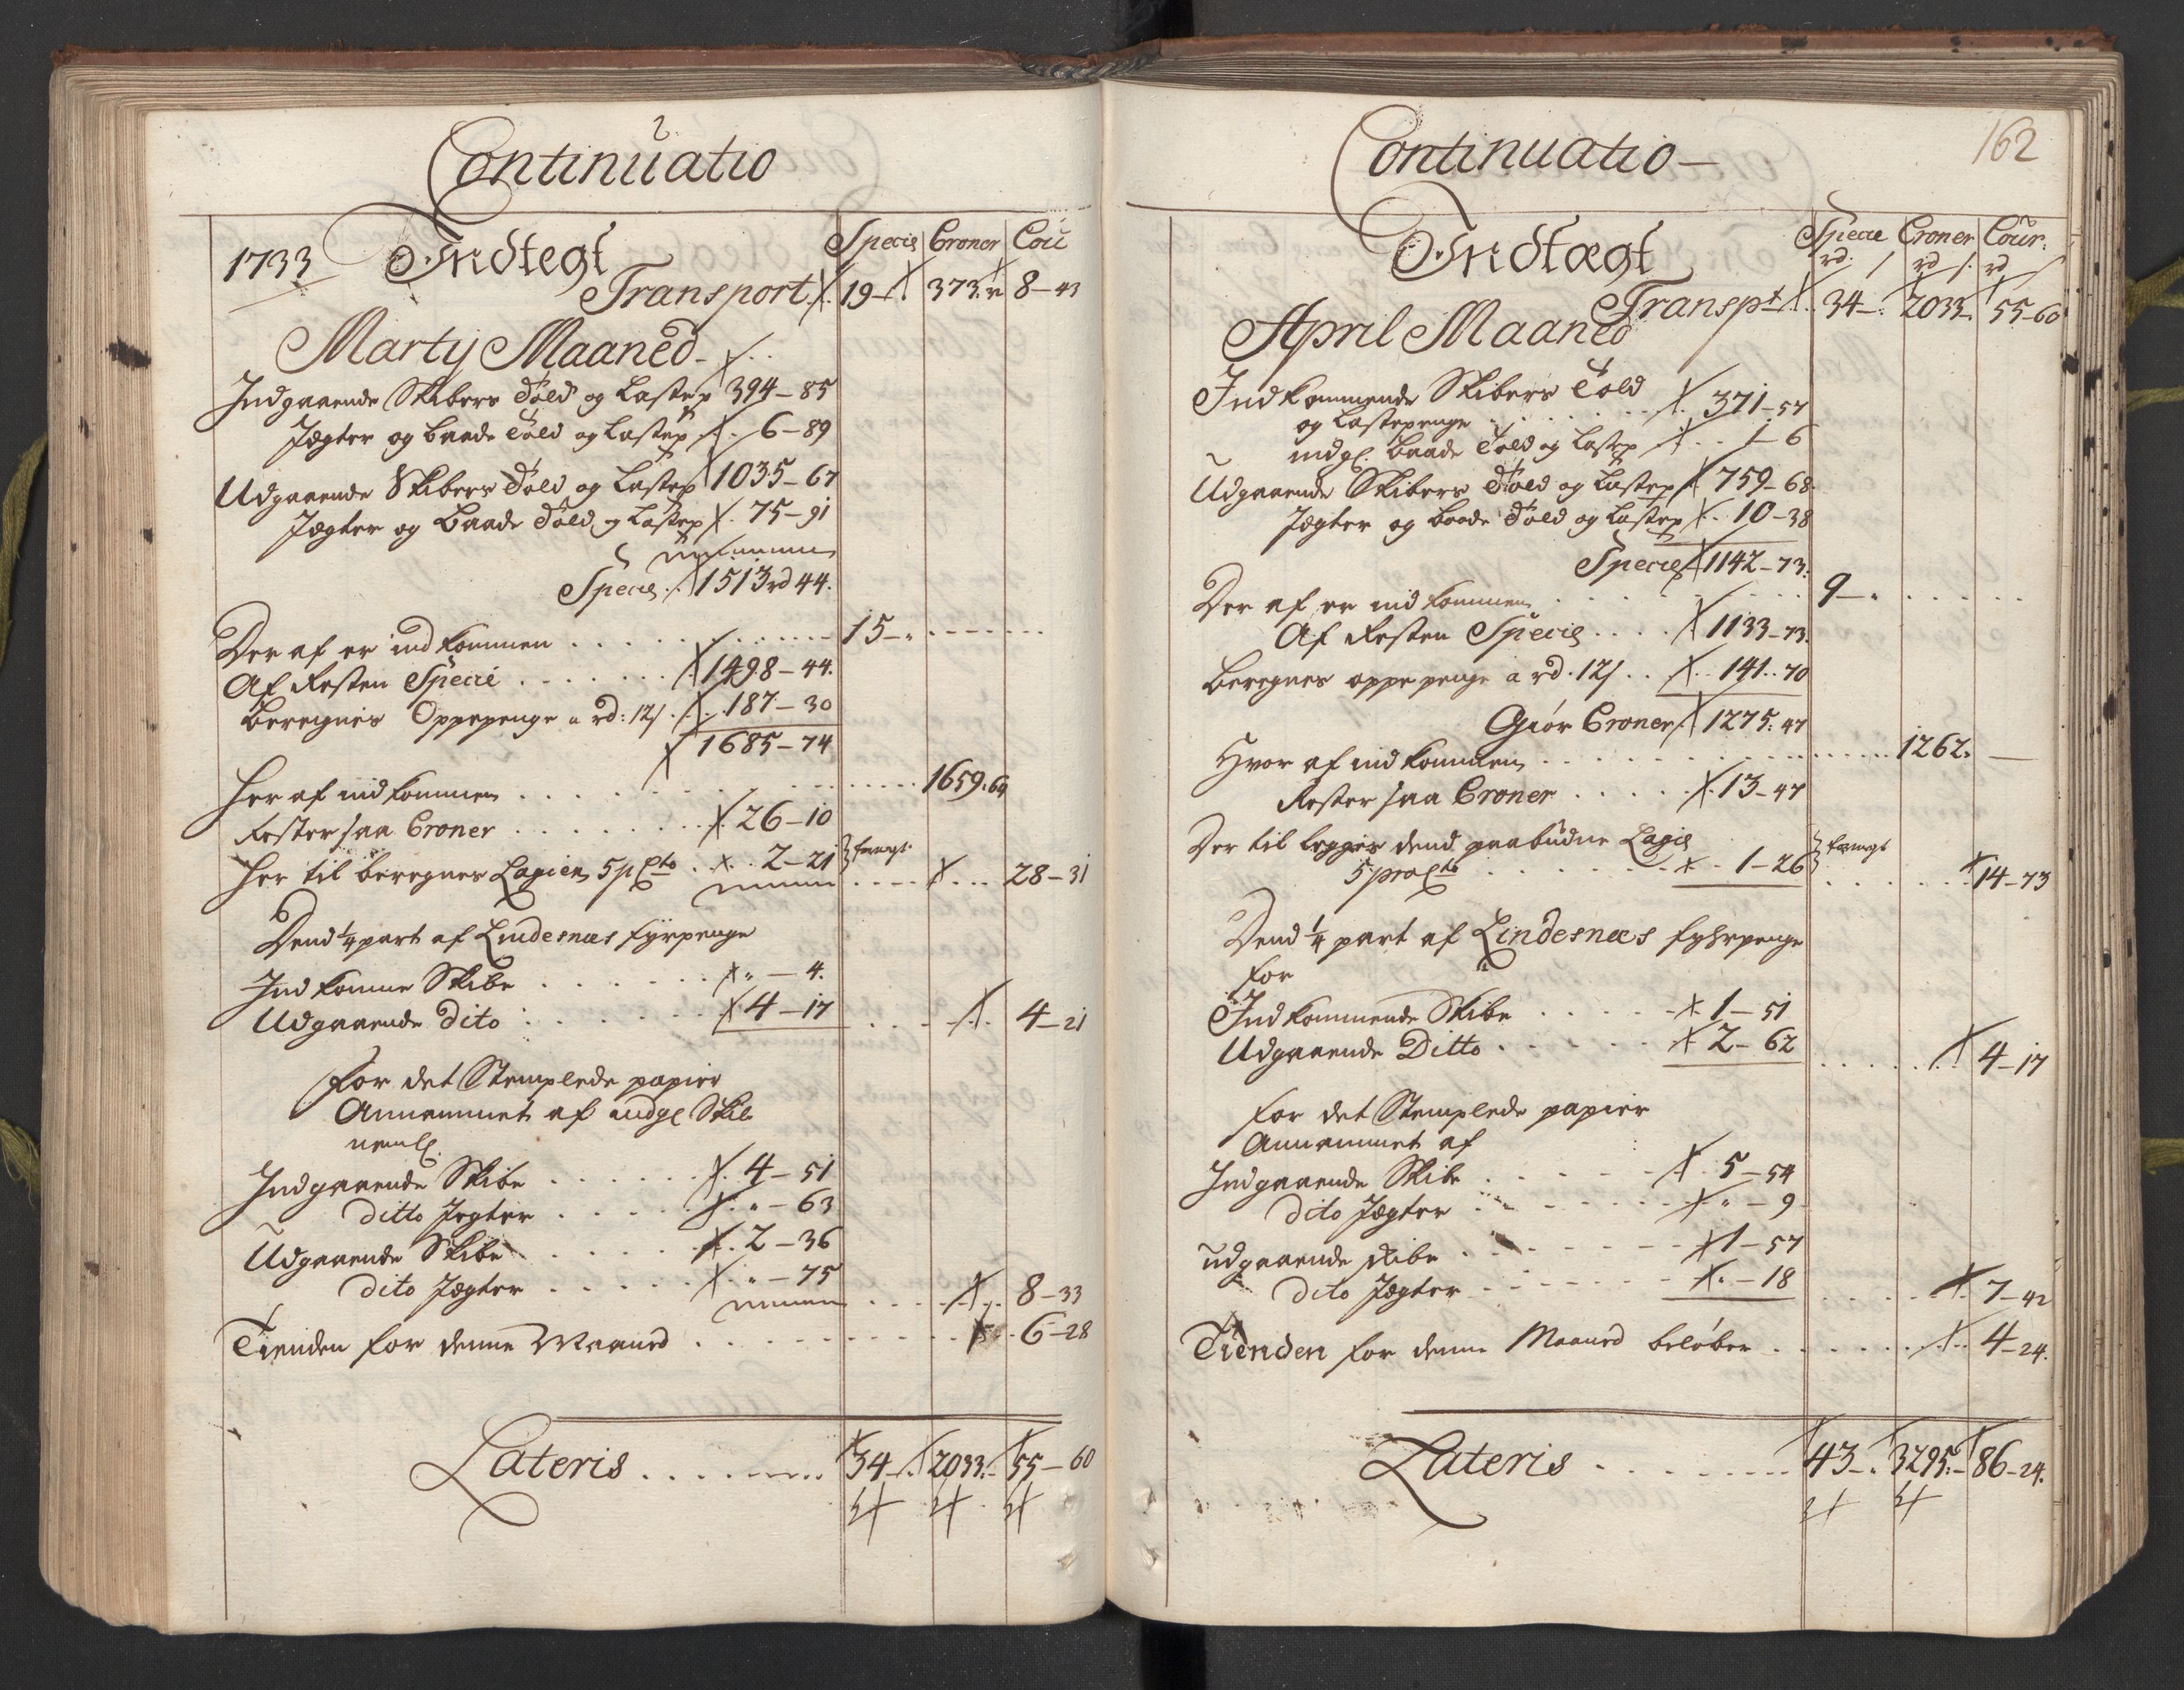 Continuatio
1733 Indtegt Specie Croner Cou
Transport 19 373. 8-43
Marty Maaned
Indgaaende Skibers Told og Lastep 394-85
Jegter og baade Told og Lastep 6-89
Udgaaende Skibers Told og Lastep 1035-67
Jegter og Baade Told og Lastep 75-91
Specie 1513 rd 44.
Der af er indkommen 15-
Af Resten Specie 1498-44.
Beregnes Oppepenge a rd: 12 s 187-30
1685-74
Her af indkommen 1659.64
Rester saa Croner 26-10
Her til beregnes Lagien 5 p Cto 2-21
28-31
Dend 1/4 part af Lindesnæs fyrpenge
Indkomne Skibe " - 4.
Udgaaende dito 4-17 4-21
for det Stemplede papier
Annammet af
neml.
Indgaaende Skibe 4-51
ditto Jegter " - 63
Udgaaende Skibe 2-36
dito Jegter " - 75
8-33
Tienden for denne Maaned 6-28
Lateris 34 2033 55-60
162
Continuatio
Indtægt Specie Croner Cour:
rd. s rd s. rd s
Transpt 34 2033 55-60
April Maaned
Indkommende Skibers Told
og Lastepenge 371-57
indg. Baade Told og Lastep 1-6
Udgaaende Skibers Told og Lastep 759-68
Jegter og baade Told og Lastep 10-38
Specie 1142-73.
Der af er indkommen 9-
Af Resten Specie 1133-73.
Beregnes oppepenge a rd. 12 s 141..70
Giør Croner 1275:47
Hvor af indkommen 1262.
Rester saa Croner 13-47
Der til legges dend paabudne Lagie
5 pro Cto 1-26
14-73
Dend 1/4 part af Lindesnæs fyhrpenge
for
Indkommende Skibe 1-51
Udgaaende Ditto 2-62
4-17
for det Stemplede papier
Annammet af
Indgaaende Skibe 5-54
dito Jegter " - 9
udgaaende skibe 1-57
dito Jegter " - 18
7-42
Tienden for denne Maaned beløber 4-24.
Lateris 43 3295 86-24.